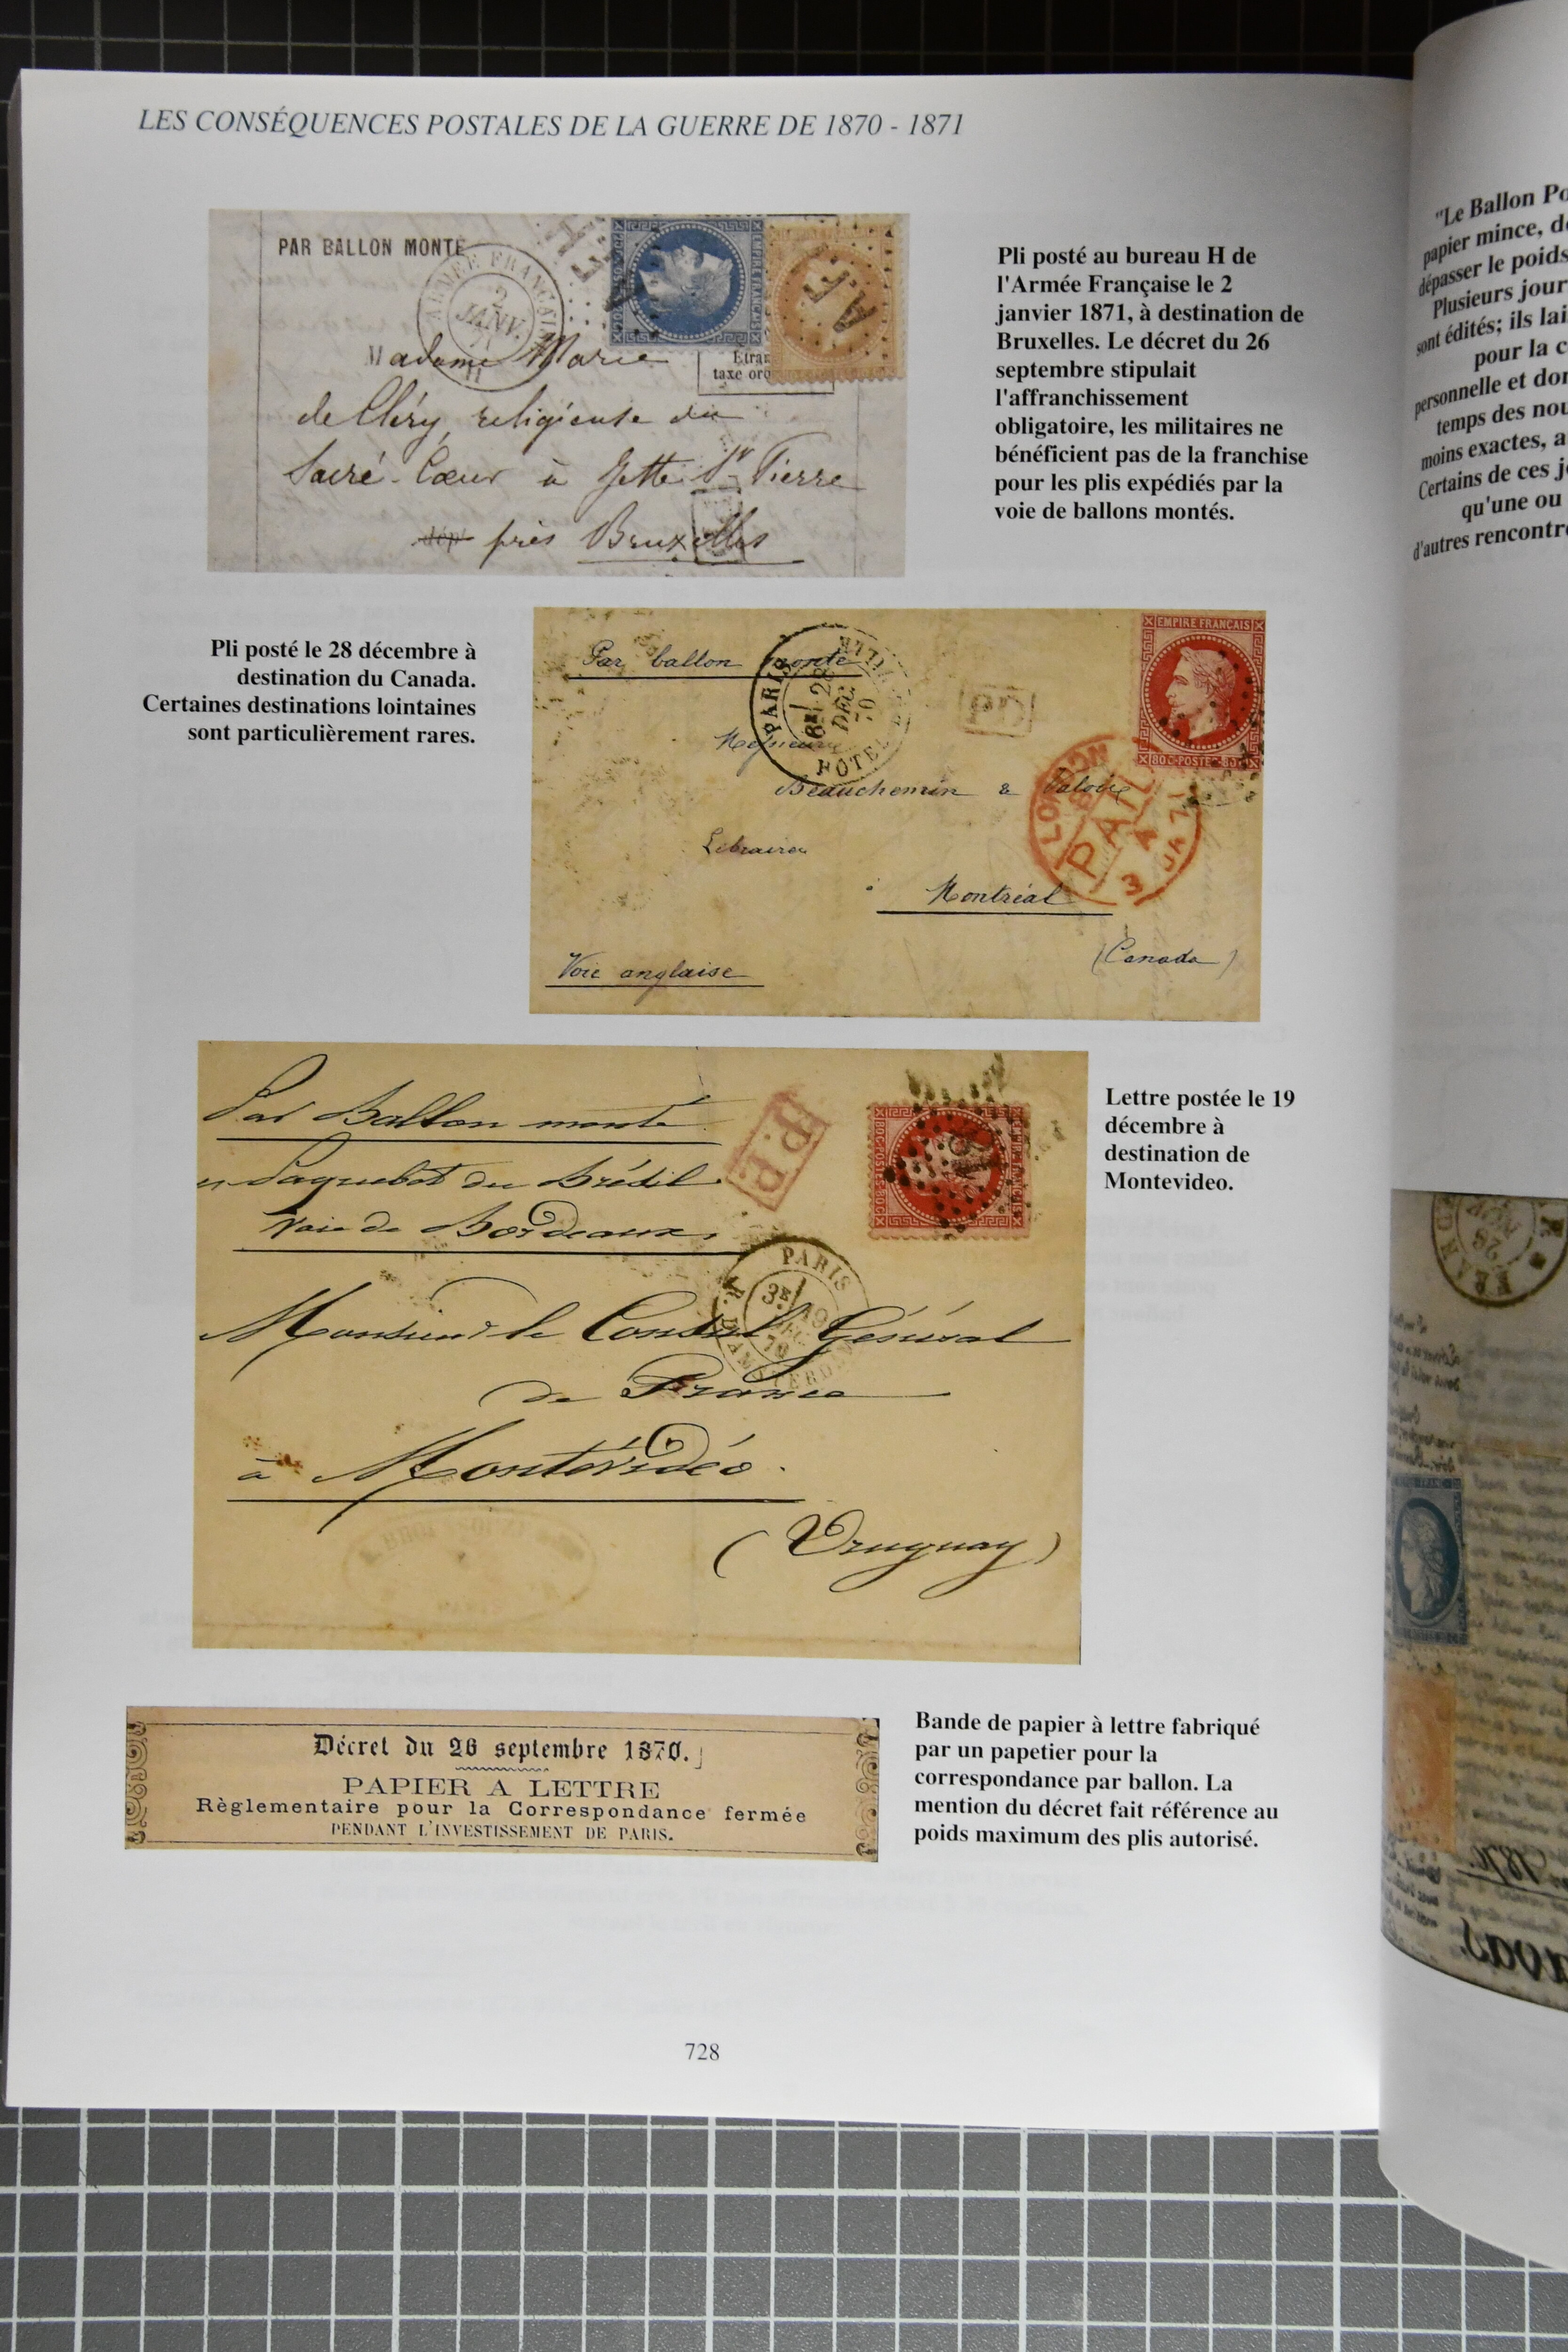 LES CONSÉQUENCES POSTALES DE LA GUERRE DE 1870 - 1871
PAR BALLON MONTÉ
ARMÉE FRANÇAISE
2
JANV.
71
H
Madame Marie
de Cléry, religieuse du
Sacré-Cœur à Jette St Pierre
près Bruxelles
Etran
taxe oro
EMPIRE FRANÇAIS
Pli posté au bureau H de
l'Armée Française le 2
janvier 1871, à destination de
Bruxelles. Le décret du 26
septembre stipulait
l'affranchissement
obligatoire, les militaires ne
bénéficient pas de la franchise
pour les plis expédiés par la
voie de ballons montés.
Pli posté le 28 décembre à
destination du Canada.
Certaines destinations lointaines
sont particulièrement rares.
Par ballon monté
PARIS
28
DEC
70
HOTEL
VILLE
Messieurs
Beauchemin & Valois
Libraires
à Montréal
(Canada)
Voie anglaise
EMPIRE FRANÇAIS
80C·POSTES·80C
LONDON
PAID
A
3 JA 71
Par Ballon monté
Paquebot du Brésil
Voie de Bordeaux.
P.P.
80C·POSTES·80C
PARIS
3E
19
DEC
70
R. D'AMSTERDAM
Monsieur le Consul Général
de France
à Montévidéo.
(Uruguay)
Lettre postée le 19
décembre à
destination de
Montevideo.
Décret du 26 septembre 1870.
PAPIER A LETTRE
Règlementaire pour la Correspondance fermée
PENDANT L'INVESTISSEMENT DE PARIS.
Bande de papier à lettre fabriqué
par un papetier pour la
correspondance par ballon. La
mention du décret fait référence au
poids maximum des plis autorisé.
728
"Le Ballon Po
papier mince, de
dépasser le poids
Plusieurs jour
sont édités; ils lai
pour la c
personnelle et don
temps des nou
moins exactes, a
Certains de ces jo
qu'une ou
d'autres rencontre
28
NOV